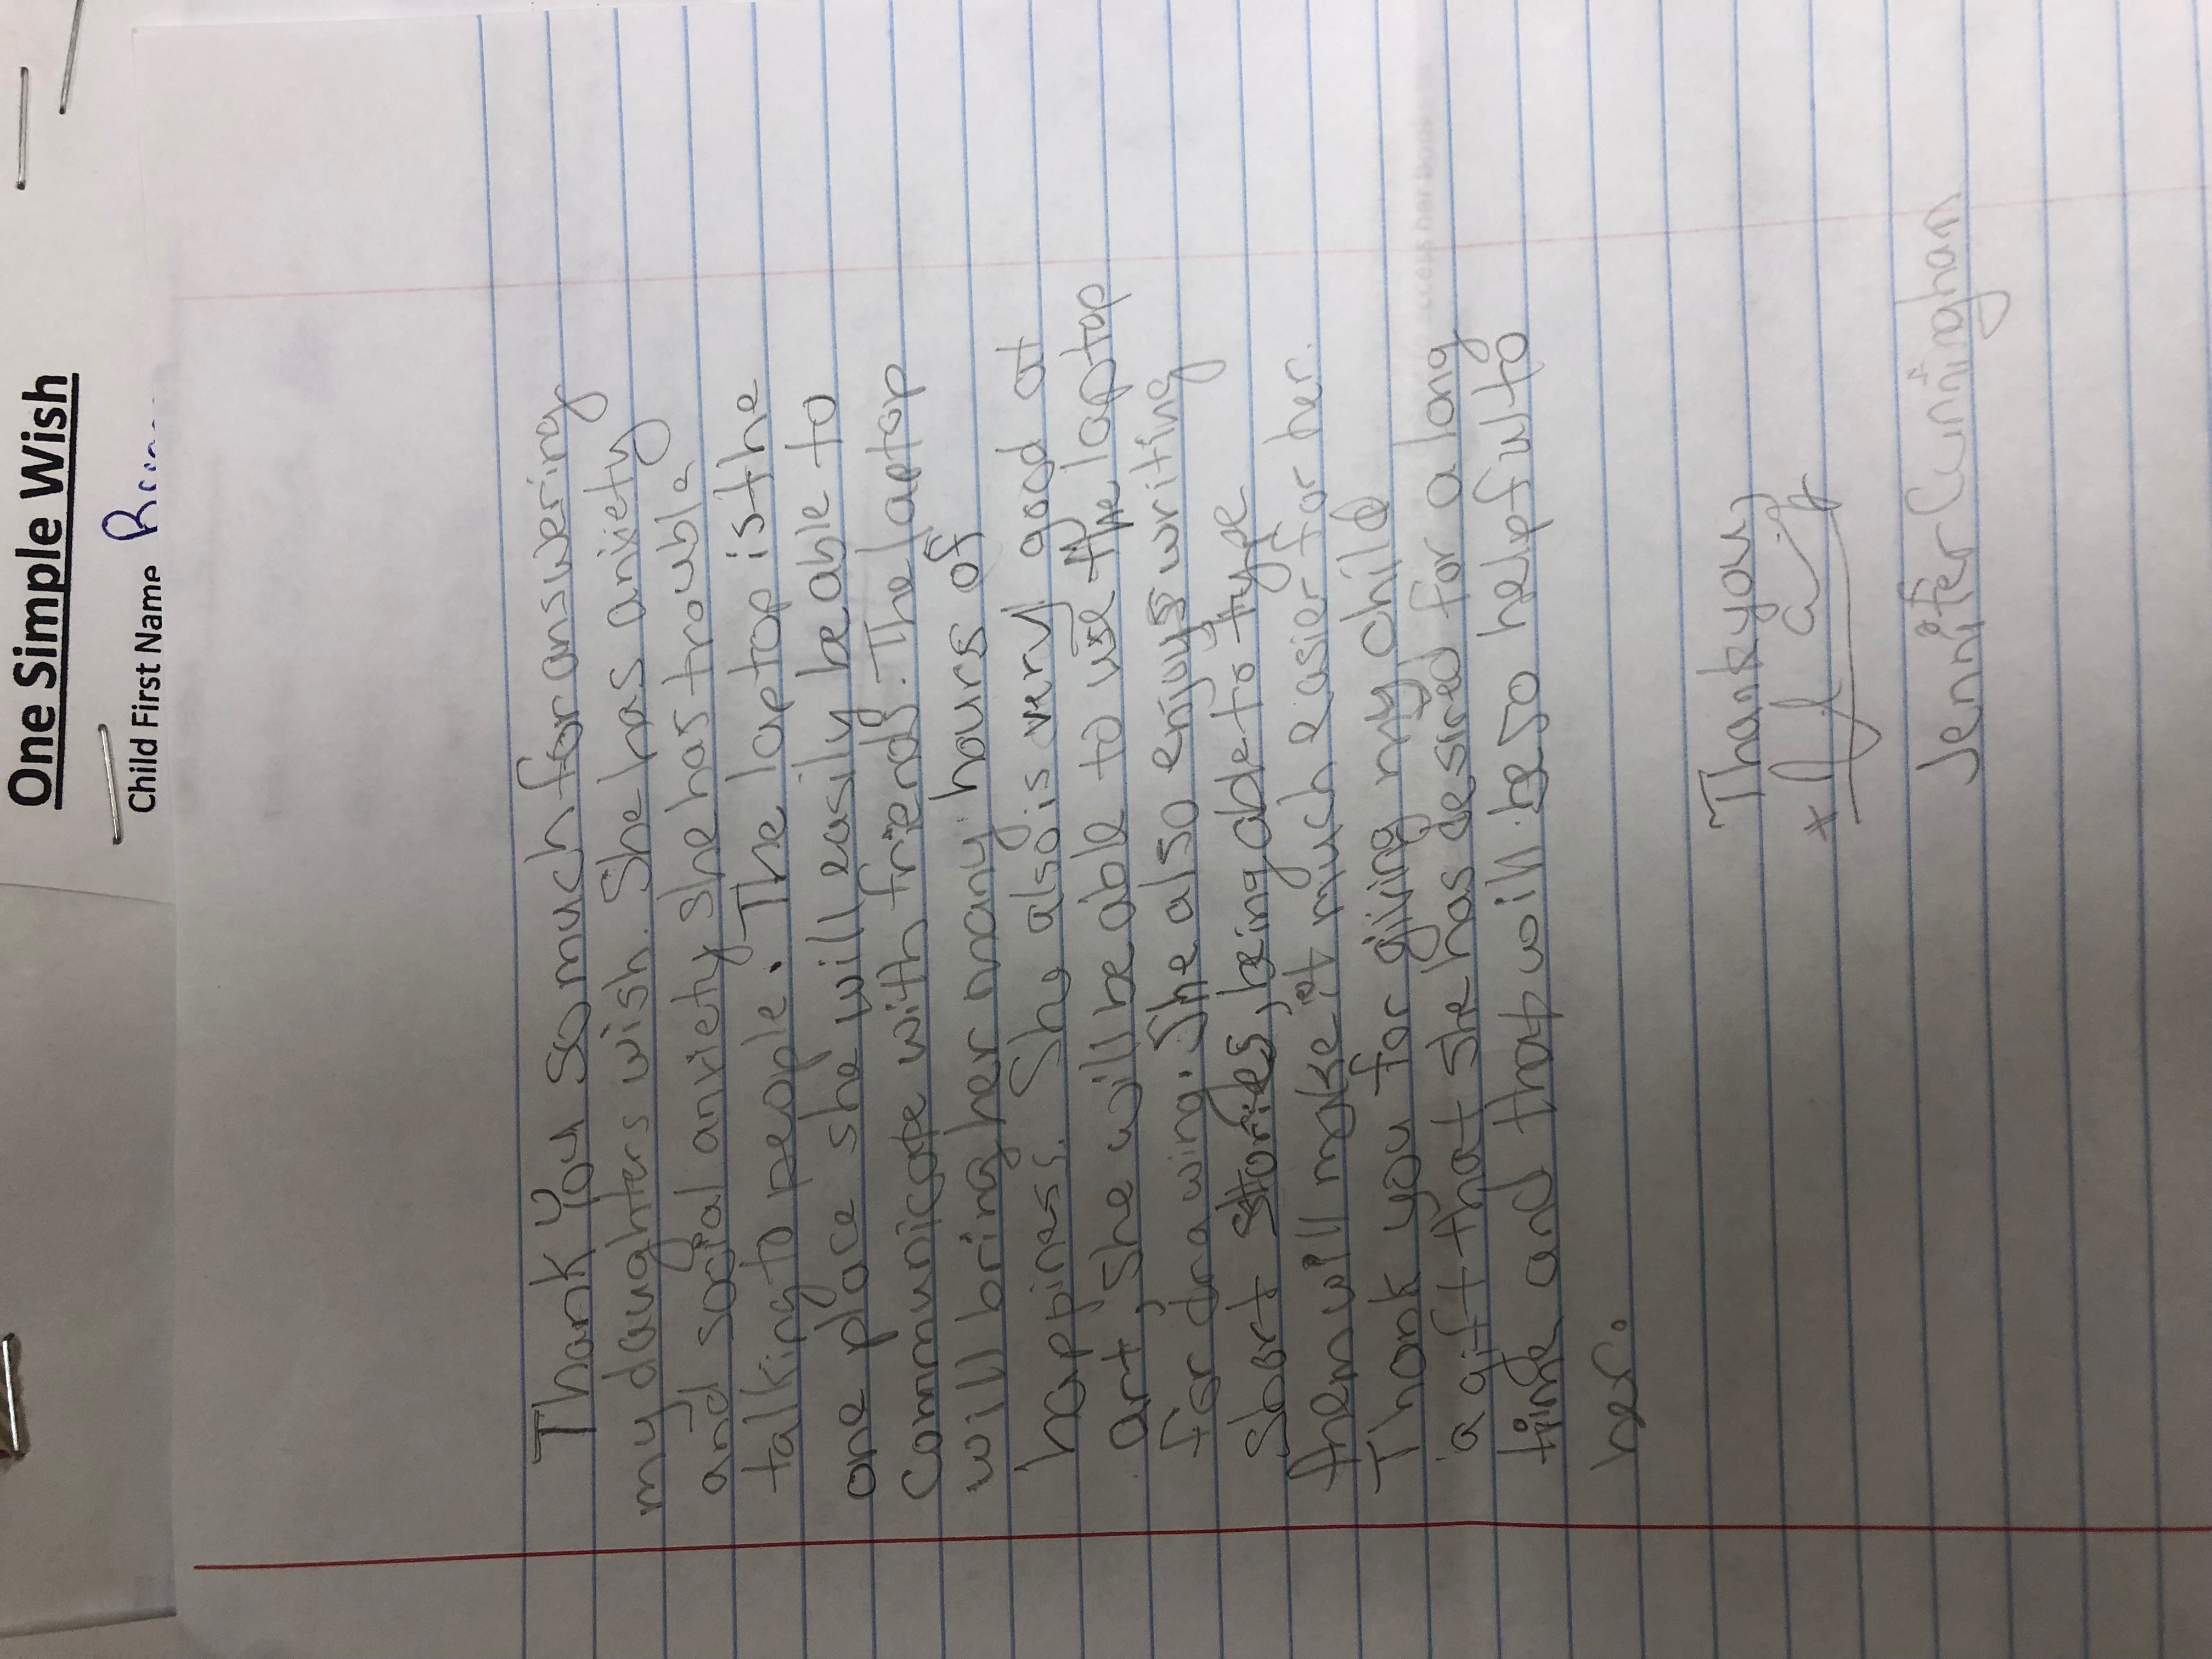 One Simple Wish
Child First Name
Thank you so much for answering
my daughters wish. She has anxiety
and social anxiety she has trouble
talking to people. The laptop is the
one place she will easily be able to
communicate with friends. The laptop
will bring her many hours of
happiness. She also is very good at
art, she will be able to use the laptop
for drawing. She also enjoys writing
short stories, being able to type
them will make it much easier for her.
Thank you for giving my child
a gift that she has desired for a long
time and that will be so helpful to
her.
Thank you,
x
Jennifer Cunningham